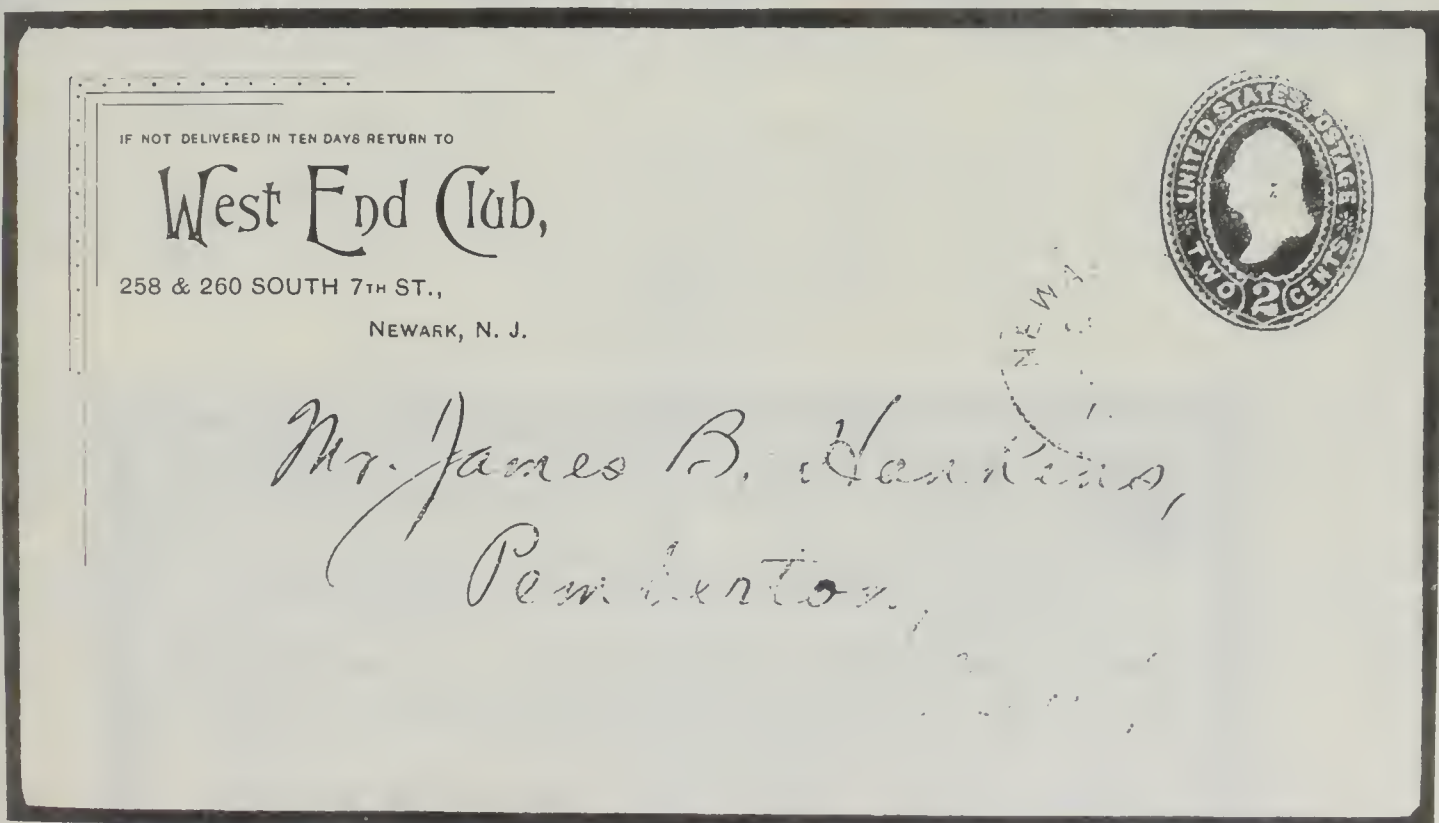 IF NOT DELIVERED IN TEN DAYS RETURN TO
West End Club,
258 & 260 SOUTH 7TH ST.,
NEWARK, N. J.
UNITED STATES POSTAGE
TWO 2 CENTS
Mr. James B. Hankins,
Pemberton,